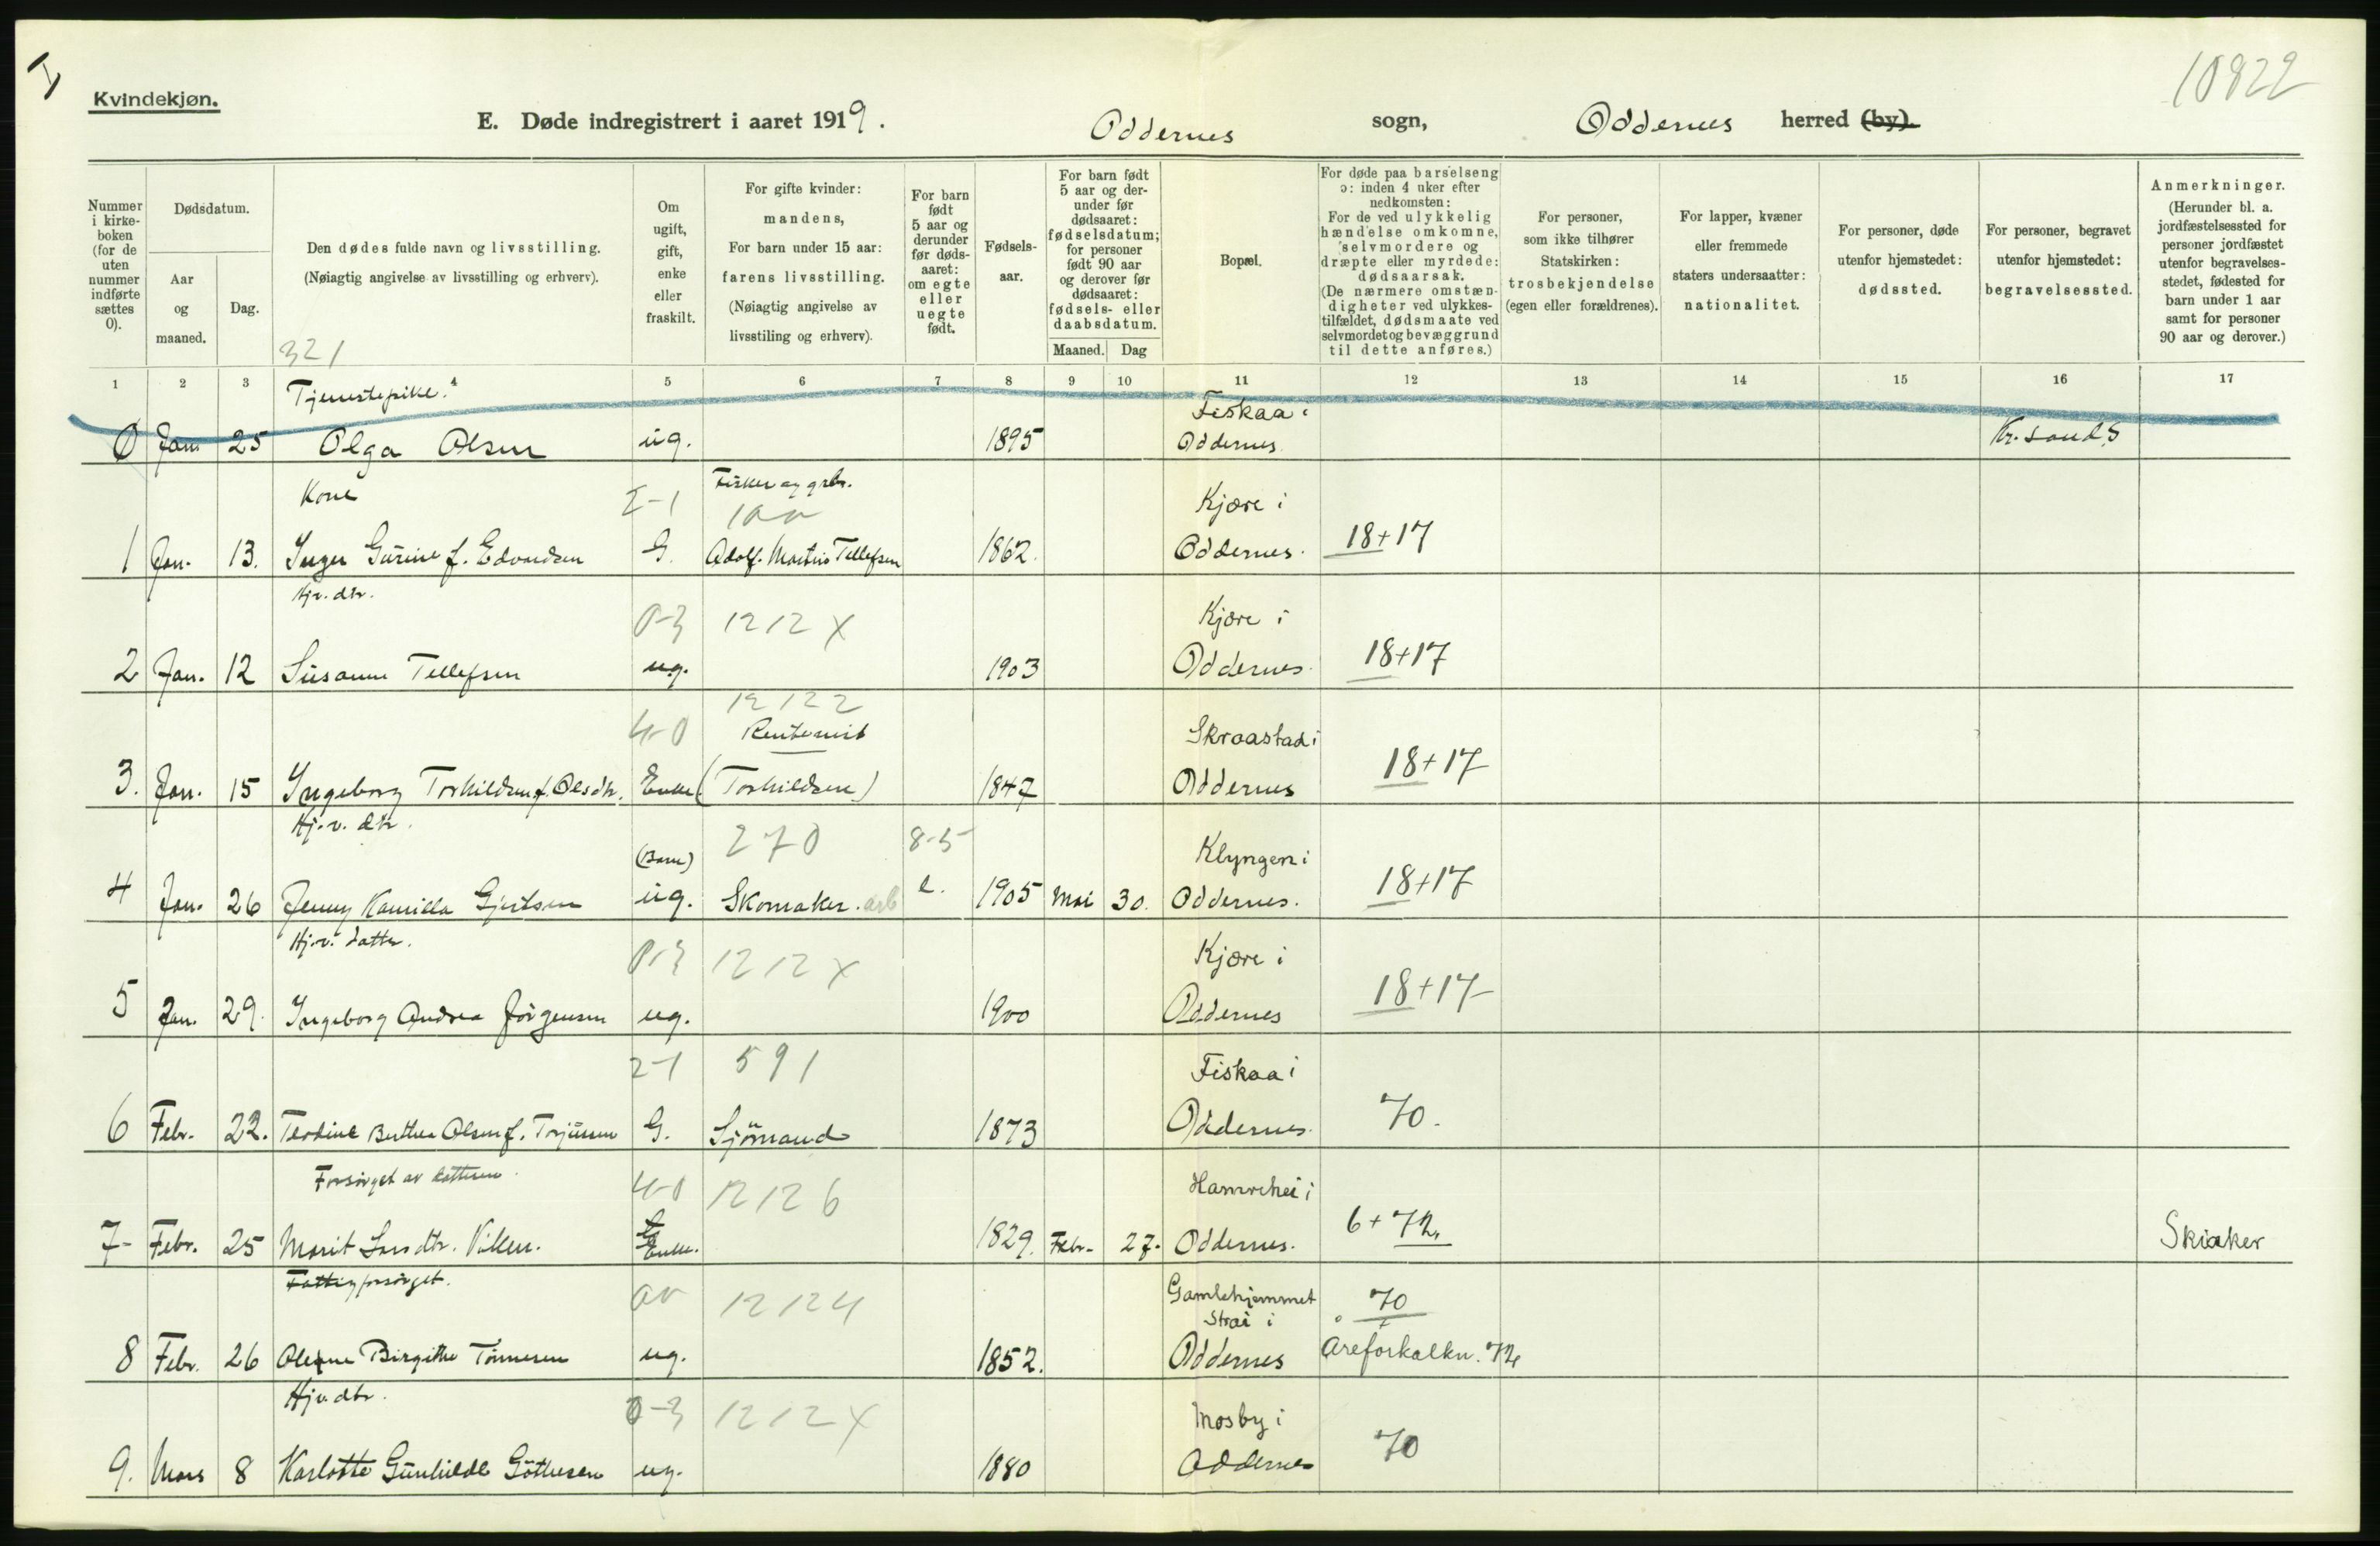 I
10822
Kvindekjøn.
E. Døde indregistrert i aaret 1919.
Oddernes sogn, Oddernes herred (by).
Nummer i kirke-boken (for de uten nummer indførte sættes 0).
Dødsdatum.
Aar og maaned.
Dag.
Den dødes fulde navn og livsstilling.
(Nøiagtig angivelse av livsstilling og erhverv).
321
Om ugift, gift, enke eller fraskilt.
For gifte kvinder: mandens,
For barn under 15 aar: farens livsstilling.
(Nøiagtig angivelse av livsstiling og erhverv).
For barn født 5 aar og derunder før døds-aaret: om egte eller uegte født.
Fødsels-aar.
For barn født 5 aar og der-under før dødsaaret: fødselsdatum; for personer født 90 aar og derover før dødsaaret: fødsels- eller daabsdatum.
Maaned. Dag
Bopæl.
For døde paa barselseng ɔ: inden 4 uker efter nedkomsten:
For de ved ulykkelig hændelse omkomne, selvmordere og dræpte eller myrdede: dødsaarsak.
(De nærmere omstæn-digheter ved ulykkes-tilfældet, dødsmaate ved selvmordet og bevæggrund til dette anføres.)
For personer, som ikke tilhører Statskirken: trosbekjendelse (egen eller forældrenes).
For lapper, kvæner eller fremmede staters undersaatter: nationalitet.
For personer, døde utenfor hjemstedet: dødssted.
For personer, begravet utenfor hjemstedet: begravelsessted.
Anmerkninger.
(Herunder bl. a. jordfæstelsessted for personer jordfæstet utenfor begravelses-stedet, fødested for barn under 1 aar samt for personer 90 aar og derover.)
1 2 3 4 5 6 7 8 9 10 11 12 13 14 15 16 17
Tjenestepike. Fiskaa i
0 Jan 25 Olga Olsen ug. 1895 Oddernes Kr.sand S
Kone 2-1 Fisker og grbr. Kjære i
1 Jan. 13. Inger Gurine f. Edvardsen G. Adolf Martin Tellefsen 1862. Oddernes. 18+17
Hjv. dtr. 0-3 1212X Kjære i
2 Jan. 12 Susanne Tellefsen ug. 1903 Oddernes. 18+17
12122
4-0 Rentenist Skraastad i
3. Jan. 15 Ingeborg Torkildsen f. Olsdtr. Enke (Torkildsen) 1847 Oddernes 18+17
Hj.v. dtr. (Barn) 270 8-5 Klyngen i
4 Jan. 26 Jenny Kamilla Gjertsen ug. Skomaker. arb e. 1905 Mai 30. Oddernes. 18+17
Hj.v. datter. 0-3 1212X Kjære i
5 Jan. 29. Ingeborg Andrea Jörgensen ug. 1900 Oddernes 18+17
2-1 591 Fiskaa i
6 Febr. 22. Teodine Berthea Olsen f. Torjusen G. Sjömand 1873 Oddernes. 70.
Forsörget av datteren. 4-0 12126 Hamrehei i
7 Febr. 25 Marit Larsdtr. Enke. 1829. Febr. 27. Oddernes. 6+72. Skiaker
Fattigforsörget. 12124 Gamlehjemmet Strai i 70 +
8 Febr. 26 Olene Birgithe Tönnesen ug. 1852. Oddernes Åreforkalkn. 72
Hjv dtr. 0-3 1212X Mosby i
9. Mars 8 Karlotte Gunhilde Göthesen ug. 1880 Oddernes 70